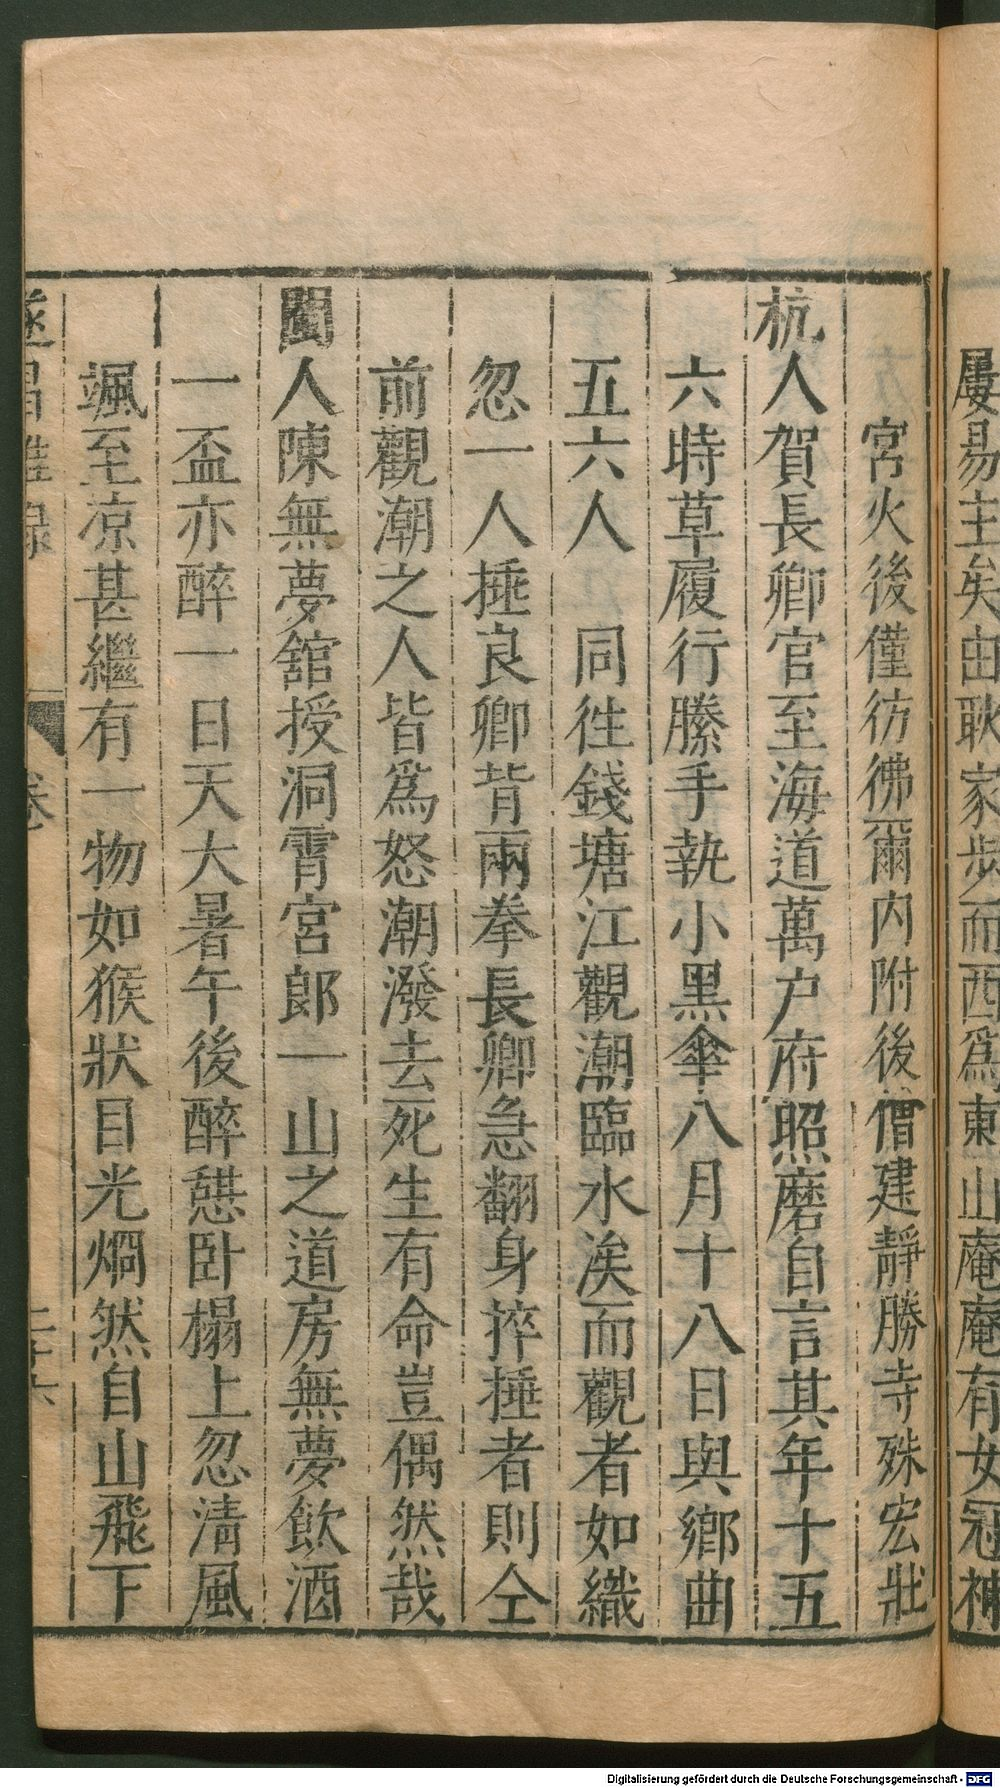 屢易主矣由耿家步而西爲東山庵庵有女冠神
宮火後僅彷彿爾内附後僧建靜勝寺殊宏壯
杭人賀長卿官至海道萬户府照磨自言其年十五
六時草履行縢手執小黑傘八月十八日與鄉曲
五六人 同徃錢塘江觀潮臨水涘而觀者如織
忽一人捶良卿背兩拳長卿急翻身捽捶者則仝
前觀潮之人皆爲怒潮潑去死生有命豈偶然哉
閩人陳無夢舘授洞霄宮郎一山之道房無夢飲酒
一盃亦醉一日天大暑午後醉憇卧榻上忽清風
颯至凉甚繼有一物如猴狀目光烱然自山飛下
遂昌雜錄 卷 二十六
Digitalisierung gefördert durch die Deutsche Forschungsgemeinschaft - DFG